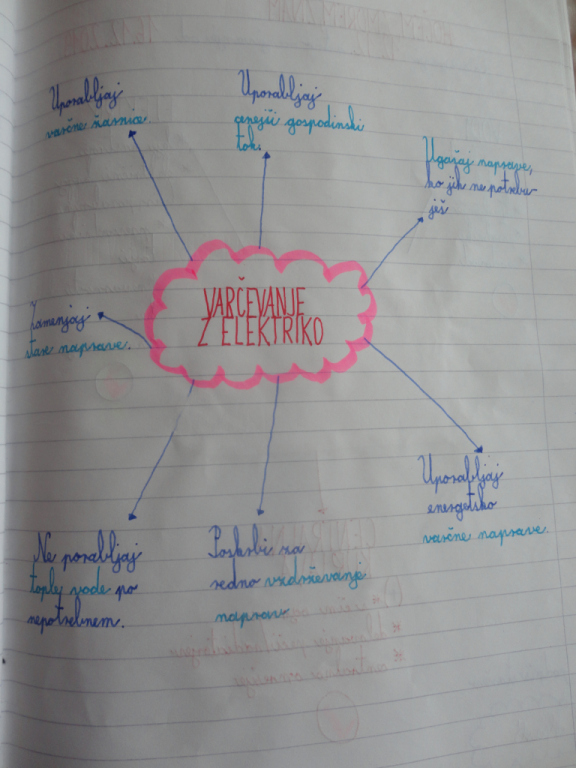 Uporabljaj
varčne žarnice.
Uporabljaj
cenejši gospodinjski
tok.
Ugašaj naprave,
ko jih ne potrebu-
ješ
VARČEVANJE
Z ELEKTRIKO
Zamenjaj
stare naprave.
Uporabljaj
energetsko
varčne naprave.
Ne porabljaj
tople vode po
nepotrebnem.
Poskrbi za
redno vzdrževanje
naprav.